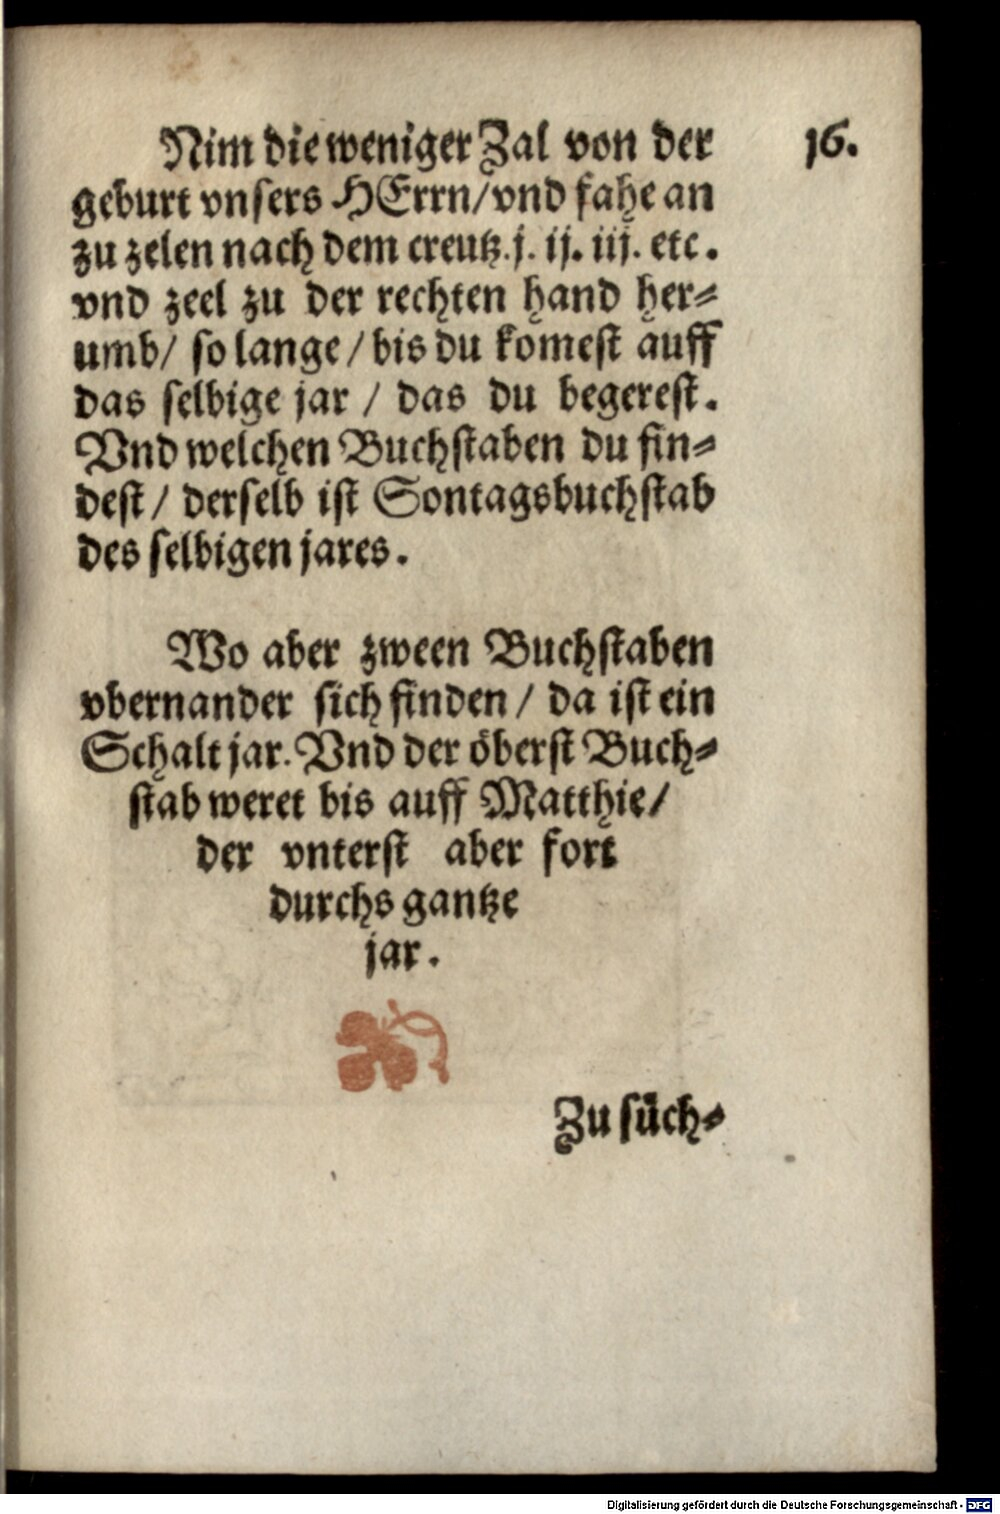 16.
Nim die weniger Zal von der
geburt vnsers HErrn/vnd fahe an
zu zelen nach dem creutz.j. ij. iij. etc.
vnd zeel zu der rechten hand her⸗
umb/ so lange/bis du komest auff
das selbige jar / das du begerest.
Vnd welchen Buchstaben du fin⸗
dest/ derselb ist Sontagsbuchstab
des selbigen jares.
Wo aber zween Buchstaben
vbernander sich finden/ da ist ein
Schalt jar. Vnd der öberst Buch⸗
stab weret bis auff Matthie/
der vnterst aber fort
durchs gantze
jar.
Zu süch⸗
Digitalisierung gefördert durch die Deutsche Forschungsgemeinschaft - DFG